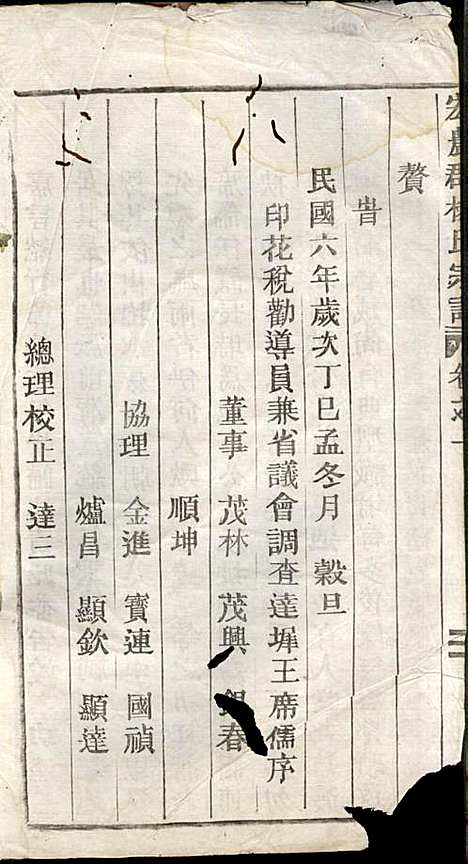 宏農郡楊氏宗譜 卷之一
贅
旹
民國六年歲次丁巳孟冬月 穀旦
印花稅勸導員兼省議會調查達墀王席儒序
董事 茂林 茂興 銀春
順坤
協理 金進 寳連 國禎
爐昌 顯欽 顯達
總理校正 達三